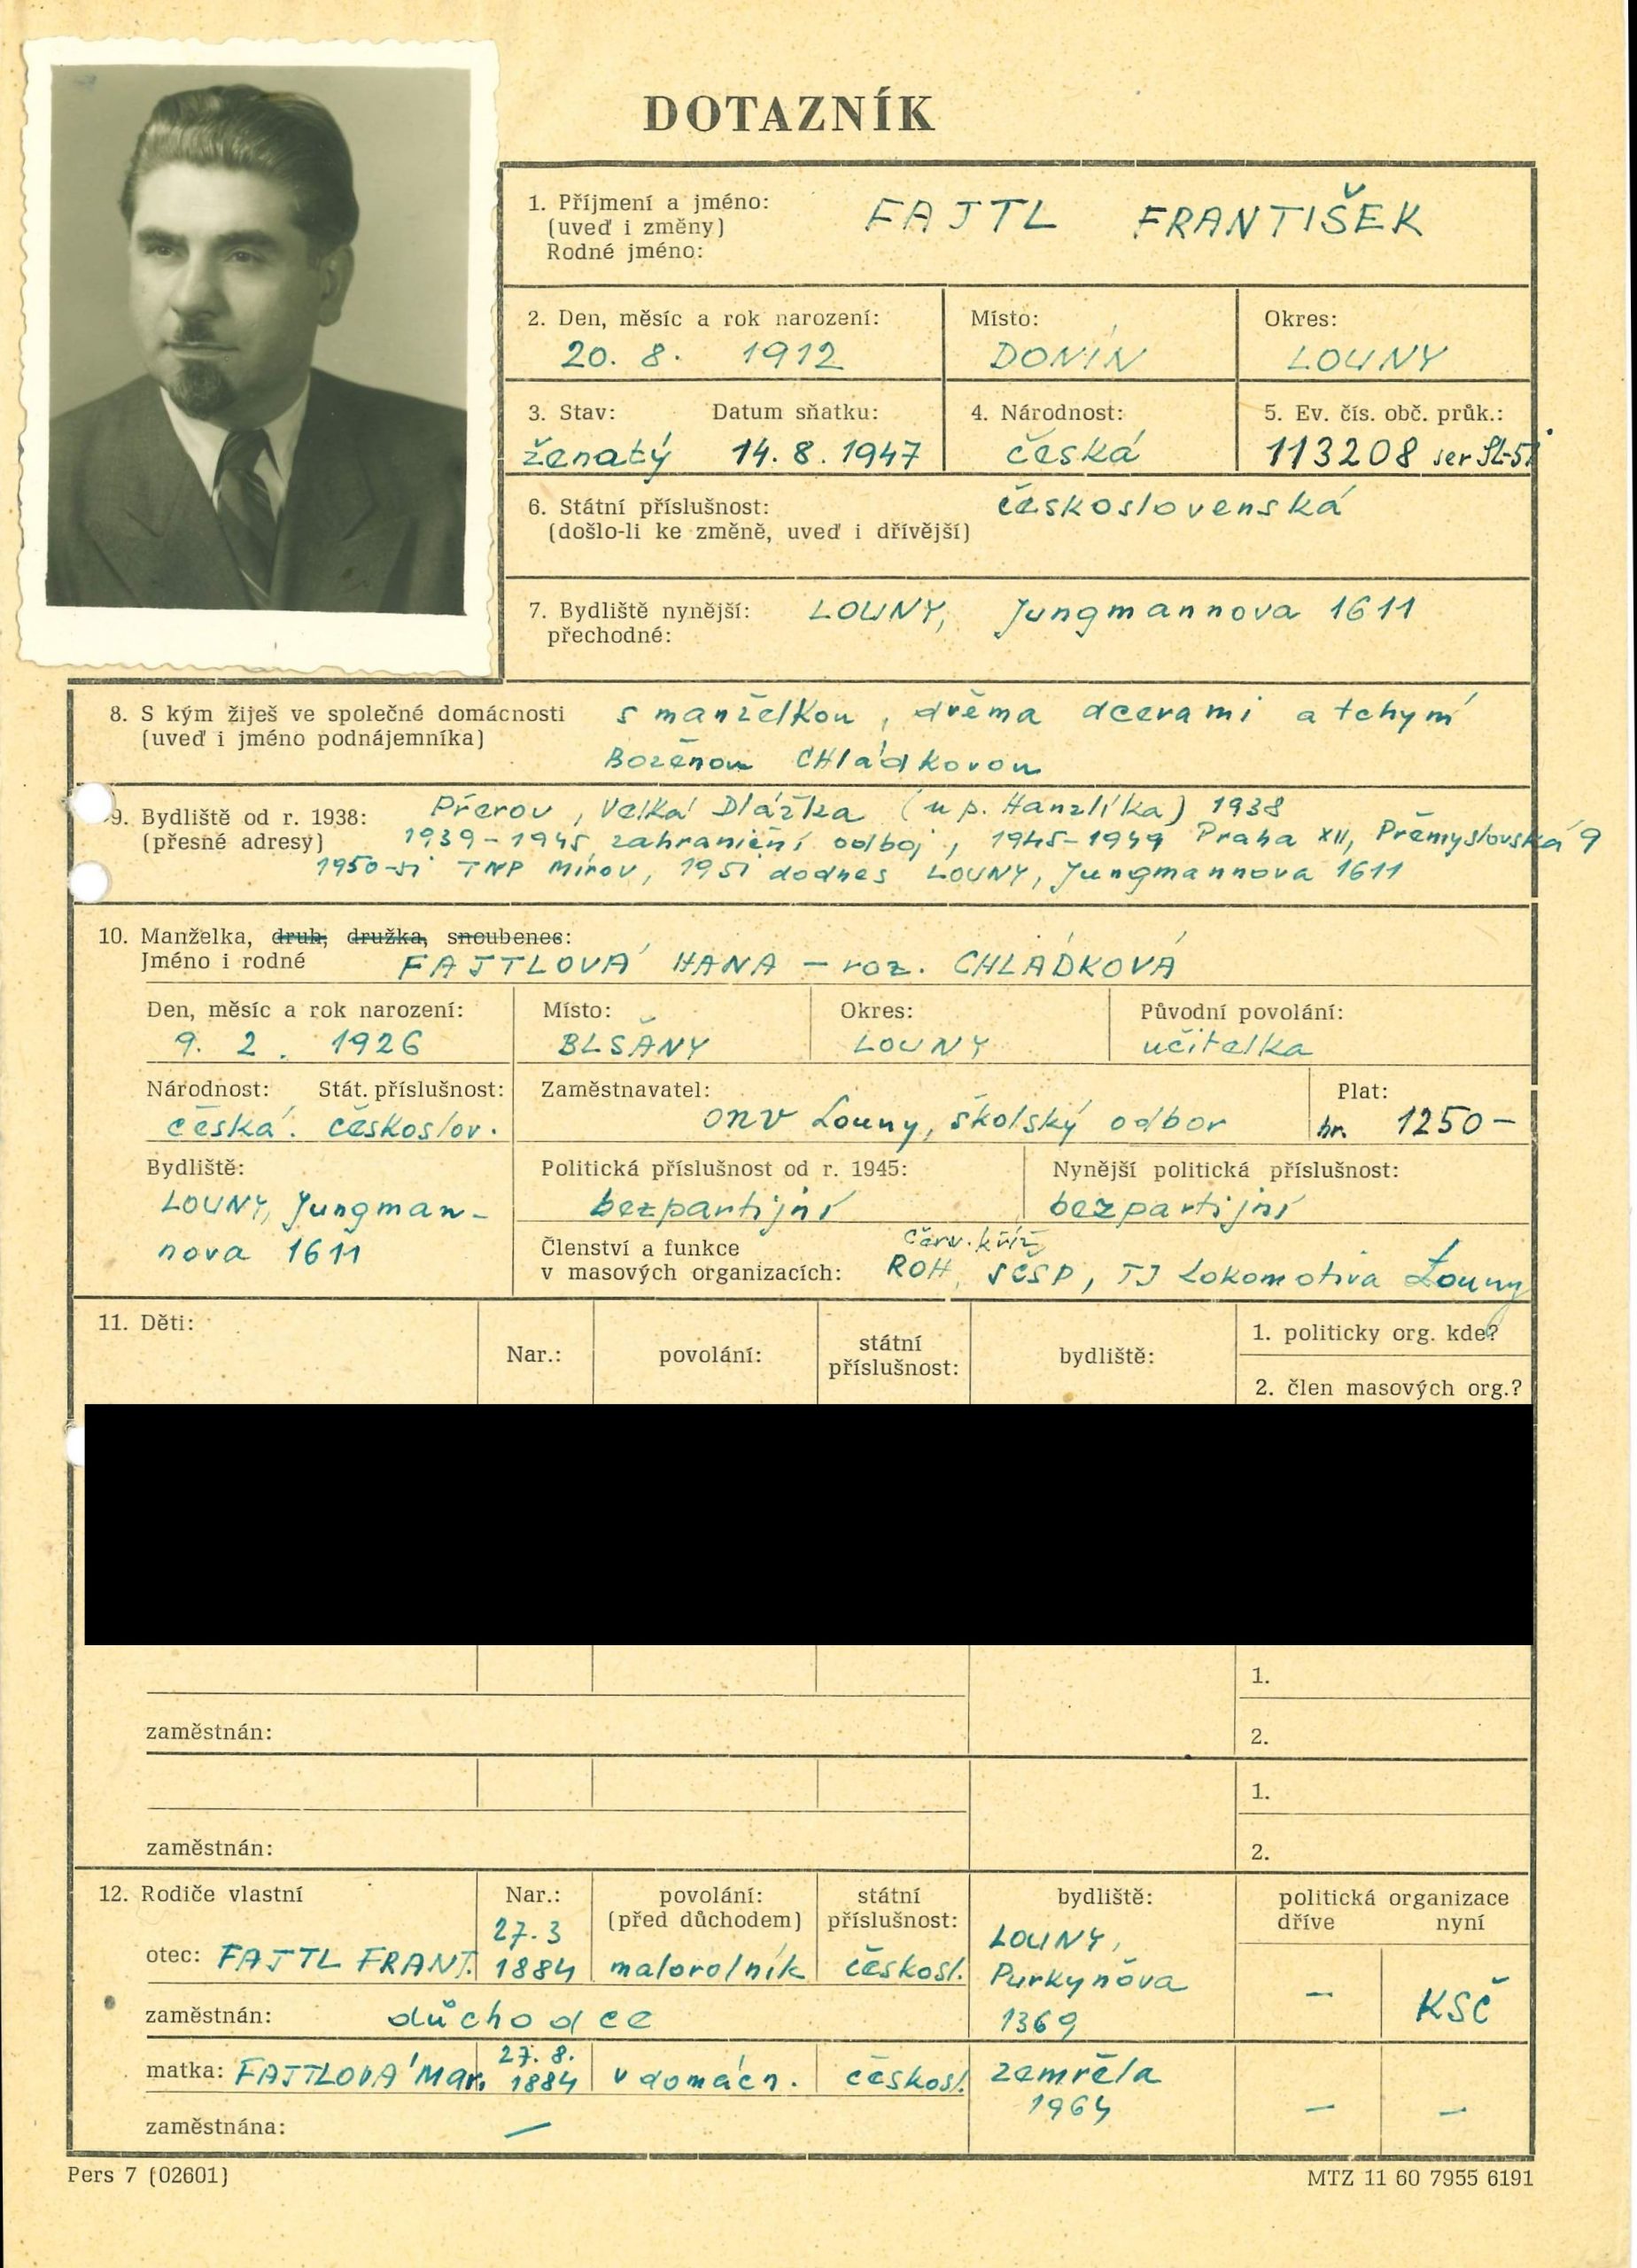 DOTAZNÍK
1. Příjmení a jméno: FAJTL FRANTIŠEK
(uveď i změny)
Rodné jméno:
2. Den, měsíc a rok narození: Místo: Okres:
20. 8. 1912 DONÍN LOUNY
3. Stav: Datum sňatku: 4. Národnost: 5. Ev. čís. obč. průk.:
ženatý 14. 8. 1947 česká 113208 ser
6. Státní příslušnost: československá
(došlo-li ke změně, uveď i dřívější)
7. Bydliště nynější: LOUNY, Jungmannova 1611
přechodné:
8. S kým žiješ ve společné domácnosti s manželkou, dvěma dcerami a tchyní
(uveď i jméno podnájemníka)
Boženou CHládkovou
9. Bydliště od r. 1938: Přerov, Velká Dlážka (u p. Hanzlíka) 1938
(přesné adresy) 1939-1945 zahraniční odboj, 1945-1949 Praha XII, Přemyslovská 9
1950-51 TNP Mírov, 1951 dodnes LOUNY, Jungmannova 1611
10. Manželka, druh, družka, snoubenec:
Jméno i rodné FAJTLOVÁ HANA - roz. CHLÁDKOVÁ
Den, měsíc a rok narození: Místo: Okres: Původní povolání:
9. 2. 1926 BLŠANY LOUNY učitelka
Národnost: Stát. příslušnost: Zaměstnavatel: Plat:
česká. českoslov. ONV Louny, školský odbor hr. 1250-
Bydliště: Politická příslušnost od r. 1945: Nynější politická příslušnost:
LOUNY, Jungman- bezpartijní bezpartijní
nova 1611 Členství a funkce Červ. kříž
v masových organizacích: ROH, SČSP, TJ Lokomotiva Louny
11. Děti: Nar.: povolání: státní příslušnost: bydliště: 1. politicky org. kde?
2. člen masových org.?
1.
zaměstnán: 2.
1.
zaměstnán: 2.
12. Rodiče vlastní Nar.: povolání: státní bydliště: politická organizace
(před důchodem) příslušnost: dříve nyní
27.3 LOUNY,
otec: FAJTL FRANT. 1884 malorolník českosl. Purkyňova
zaměstnán: důchodce 1369 - KSČ
27. 8.
matka: FAJTLOVÁ Mar. 1884 v domácn. českosl. zemřela
1964 - -
zaměstnána: -
Pers 7 (02601) MTZ 11 60 7955 6191